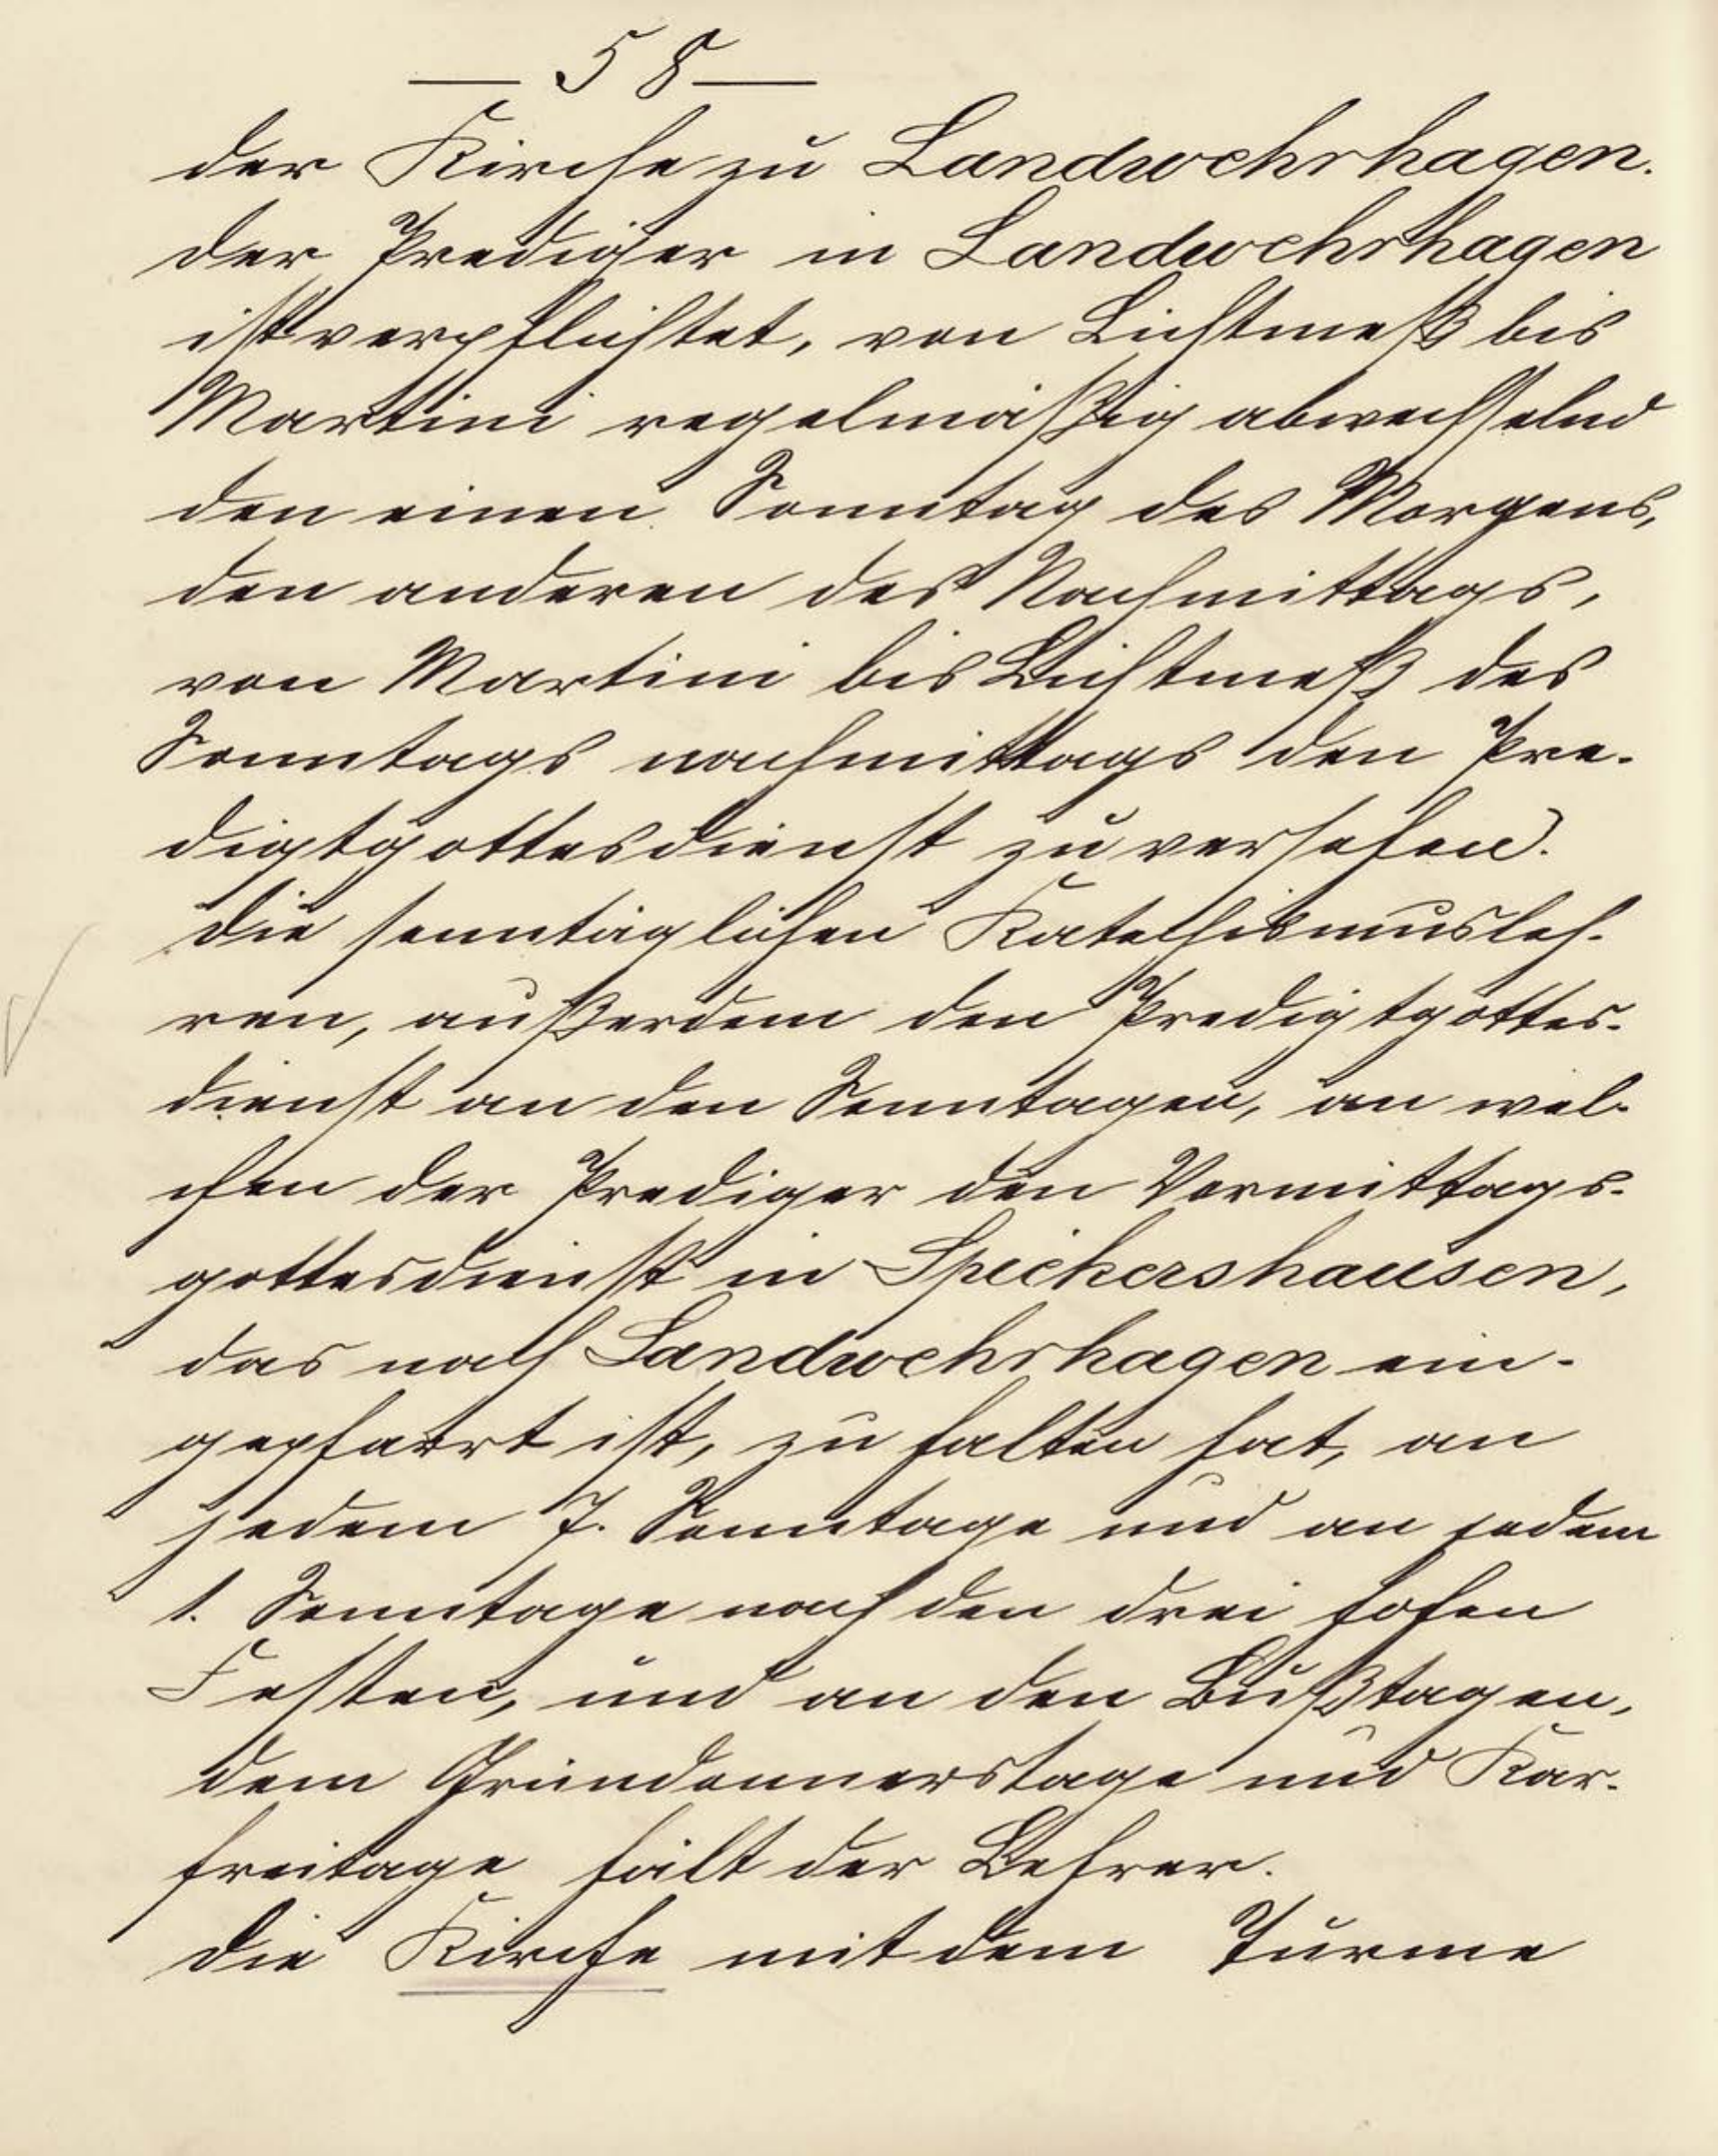 — 58 —
der Kirche zu Landwehrhagen.
Der Prediger in Landwehrhagen
ist verpflichtet, von Lichtmeß bis
Martini regelmäßig abwechselnd
den einen Sonntag des Morgens,
den anderen des Nachmittags,
von Martini bis Lichtmeß des
Sonntags nachmittags den Pre-
digtgottesdienst zu versehen.
Die sonntäglichen Katechismusleh-
ren, außerdem den Predigtgottes-
dienst an den Sonntagen, an wel-
chen der Prediger den Vormittags-
gottesdienst in Spiekershausen,
das nach Landwehrhagen ein-
gepfarrt ist, zu halten hat, an
jedem 7. Sonntage und an jedem
1. Sonntage nach den drei hohen
Festen, und an den Bußtagen,
dem Gründonnerstage und Kar-
freitage hält der Lehrer.
Die Kirche mit dem Turme